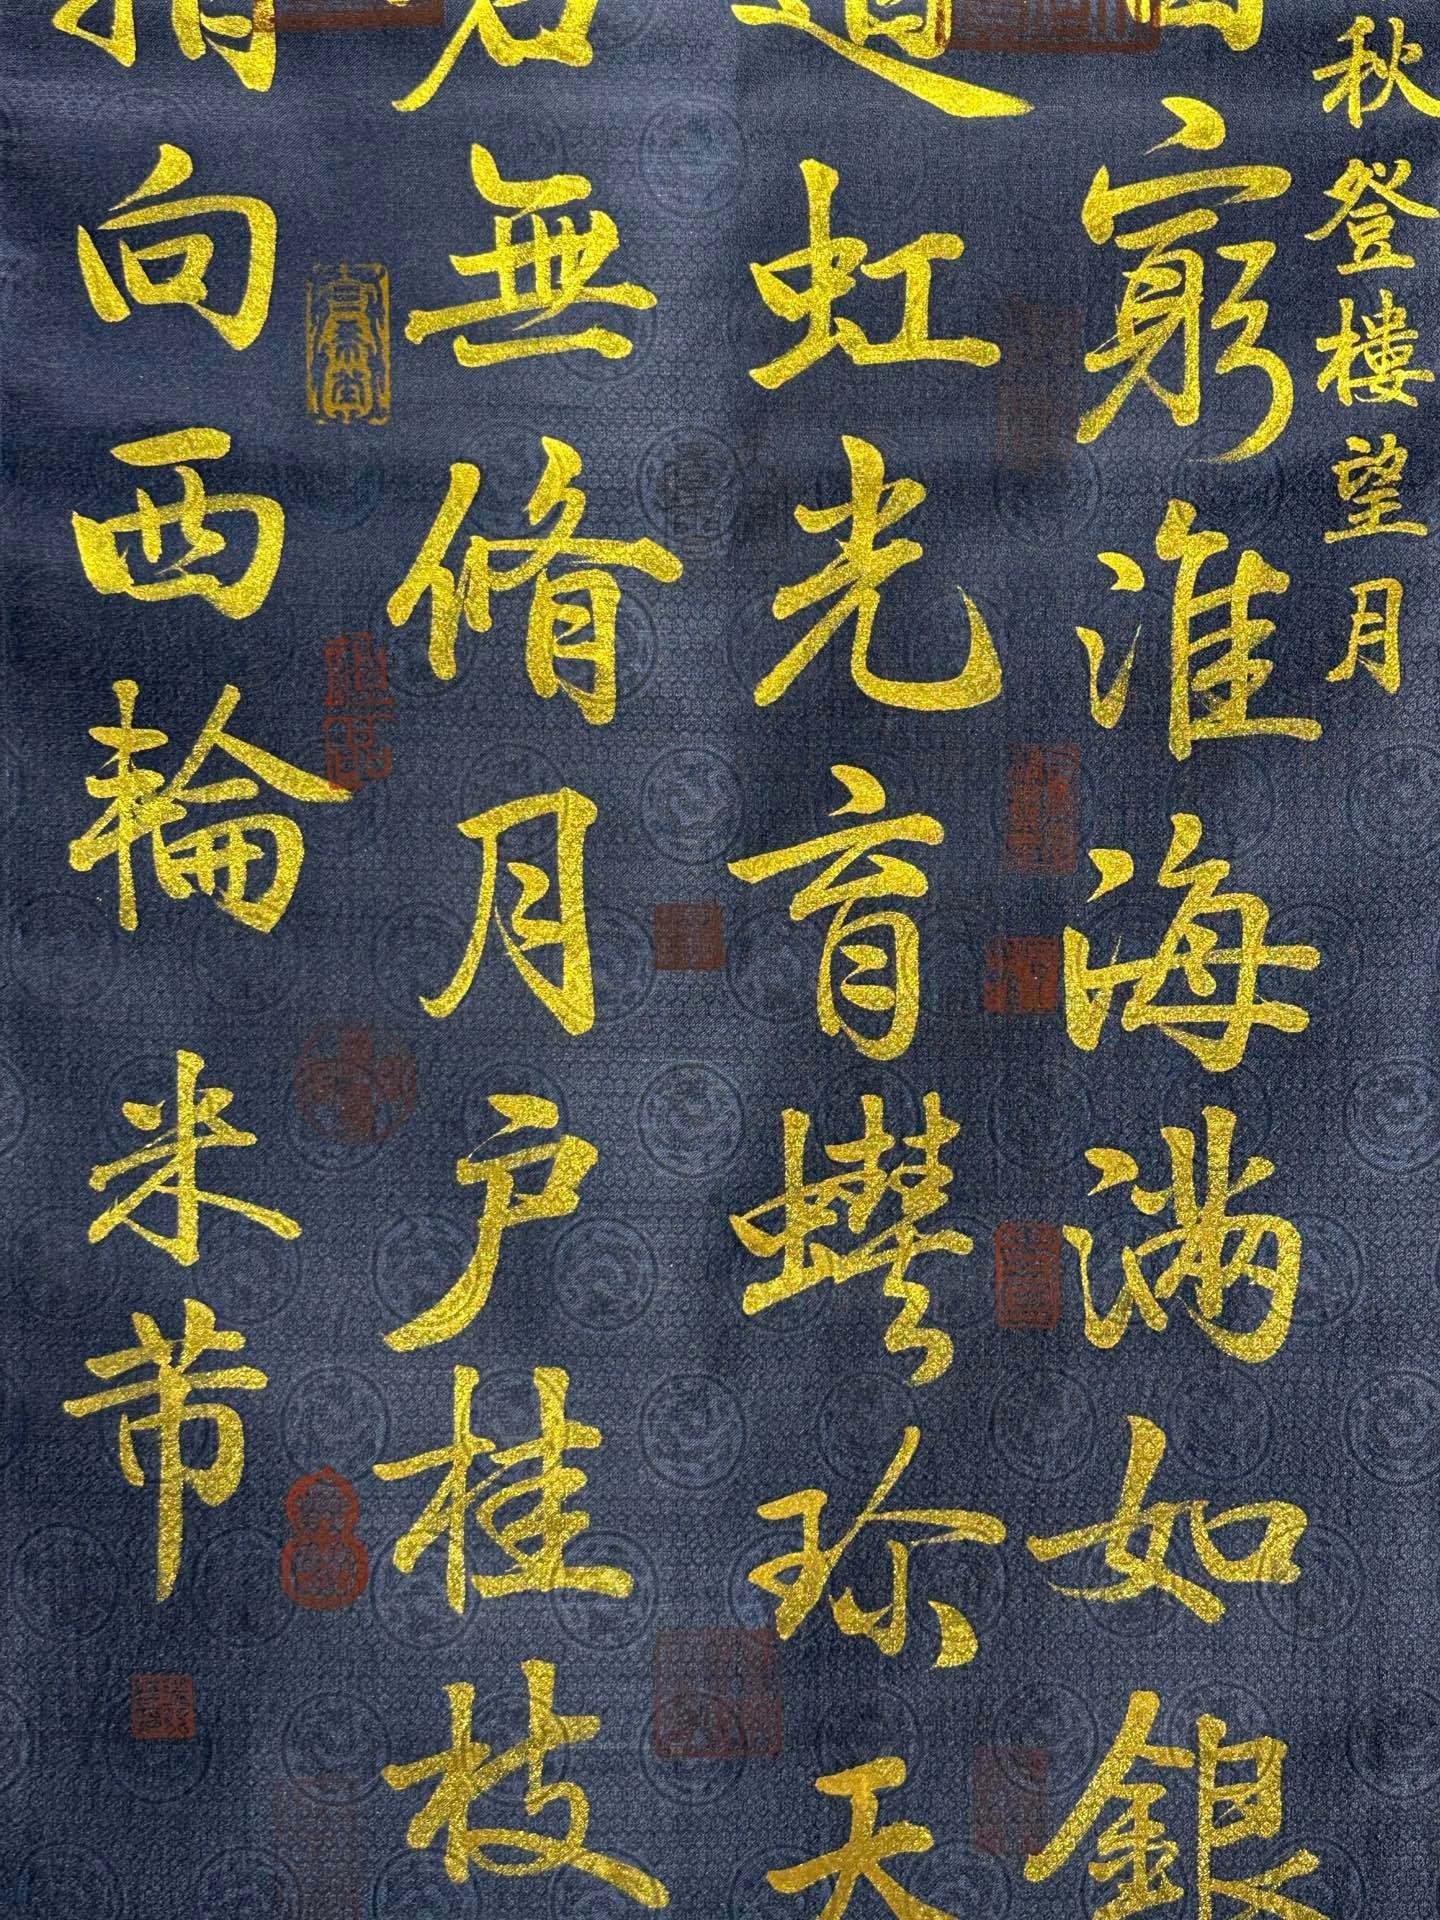 秋登樓望月
窮淮海滿如銀
道虹光育蚌珍天
若無脩月户桂枝
損向西輪 米芾